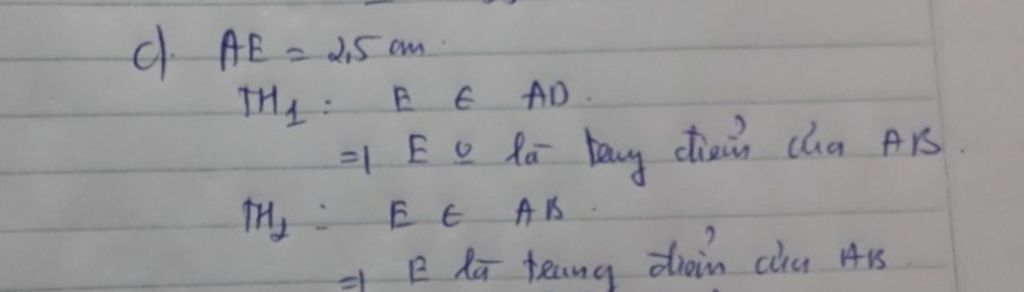 c). AE = 2,5 cm.
TH1: E ∈ AD.
=> E o là trung điểm của AB.
TH2: E ∈ AB.
=> E là trung điểm của AB